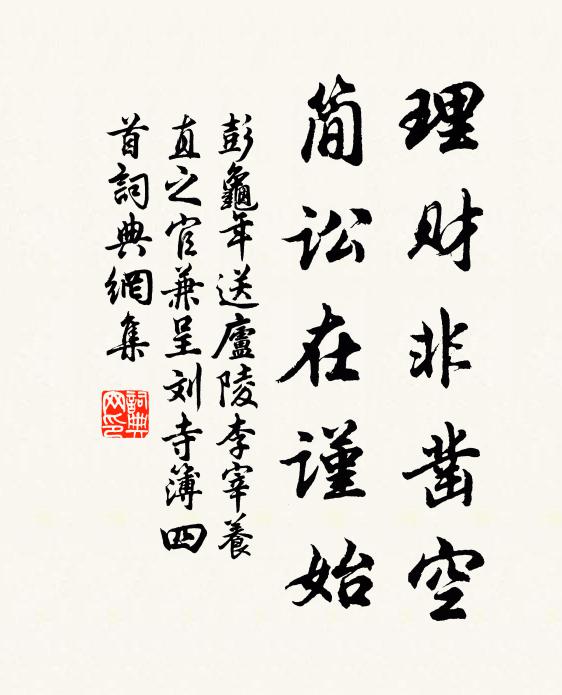 理财非凿空
简讼在谨始
彭龜年送廬陵李宰養
直之官兼呈刘寺簿四
首詞典網集
詞典网印